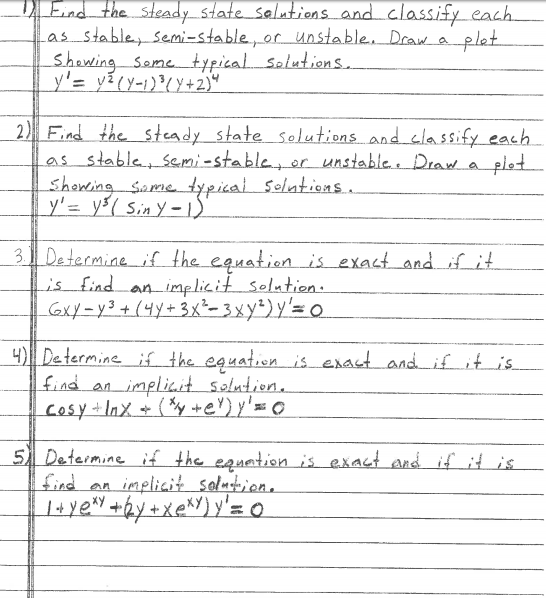 1) Find the steady state solutions and classify each
as stable, semi-stable, or unstable. Draw a plot
showing some typical solutions.
y' = y²(y-1)³(y+2)⁴
2) Find the steady state solutions and classify each
as stable, semi-stable, or unstable. Draw a plot
showing some typical solutions.
y' = y³(sin y - 1)
3.) Determine if the equation is exact and if it
is find an implicit solution.
6xy - y³ + (4y + 3x² - 3xy²) y' = 0
4) Determine if the equation is exact and if it is
find an implicit solution.
cosy + lnx + (x/y + e^y) y' = 0
5) Determine if the equation is exact and if it is
find an implicit solution.
1 + ye^xy + (2y + xe^xy) y' = 0